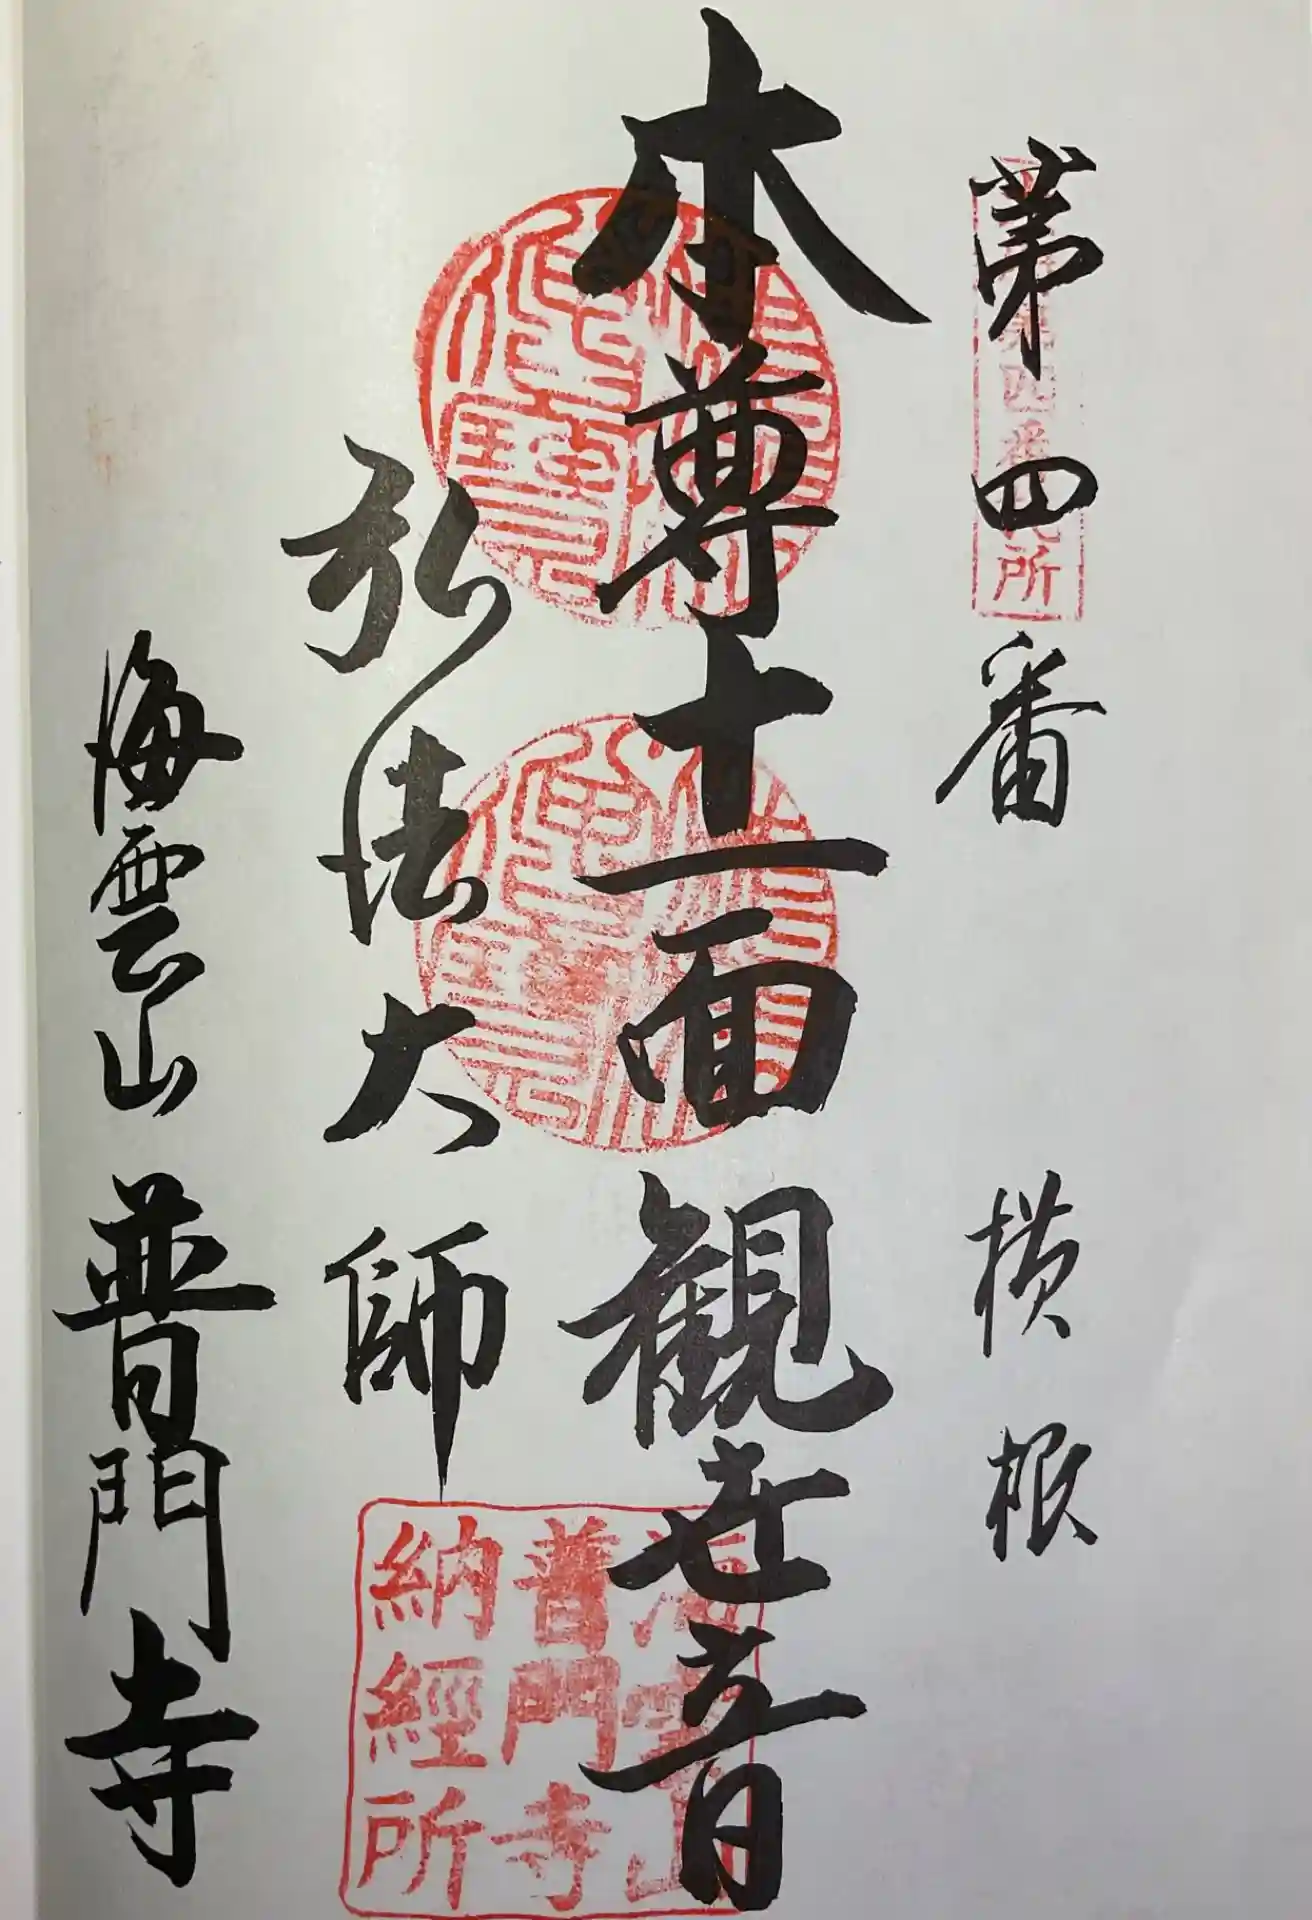 第四番 横根
本尊十一面観世音
弘法大師
海雲山普門寺
第四番
所
海雲山
普門寺
納經所